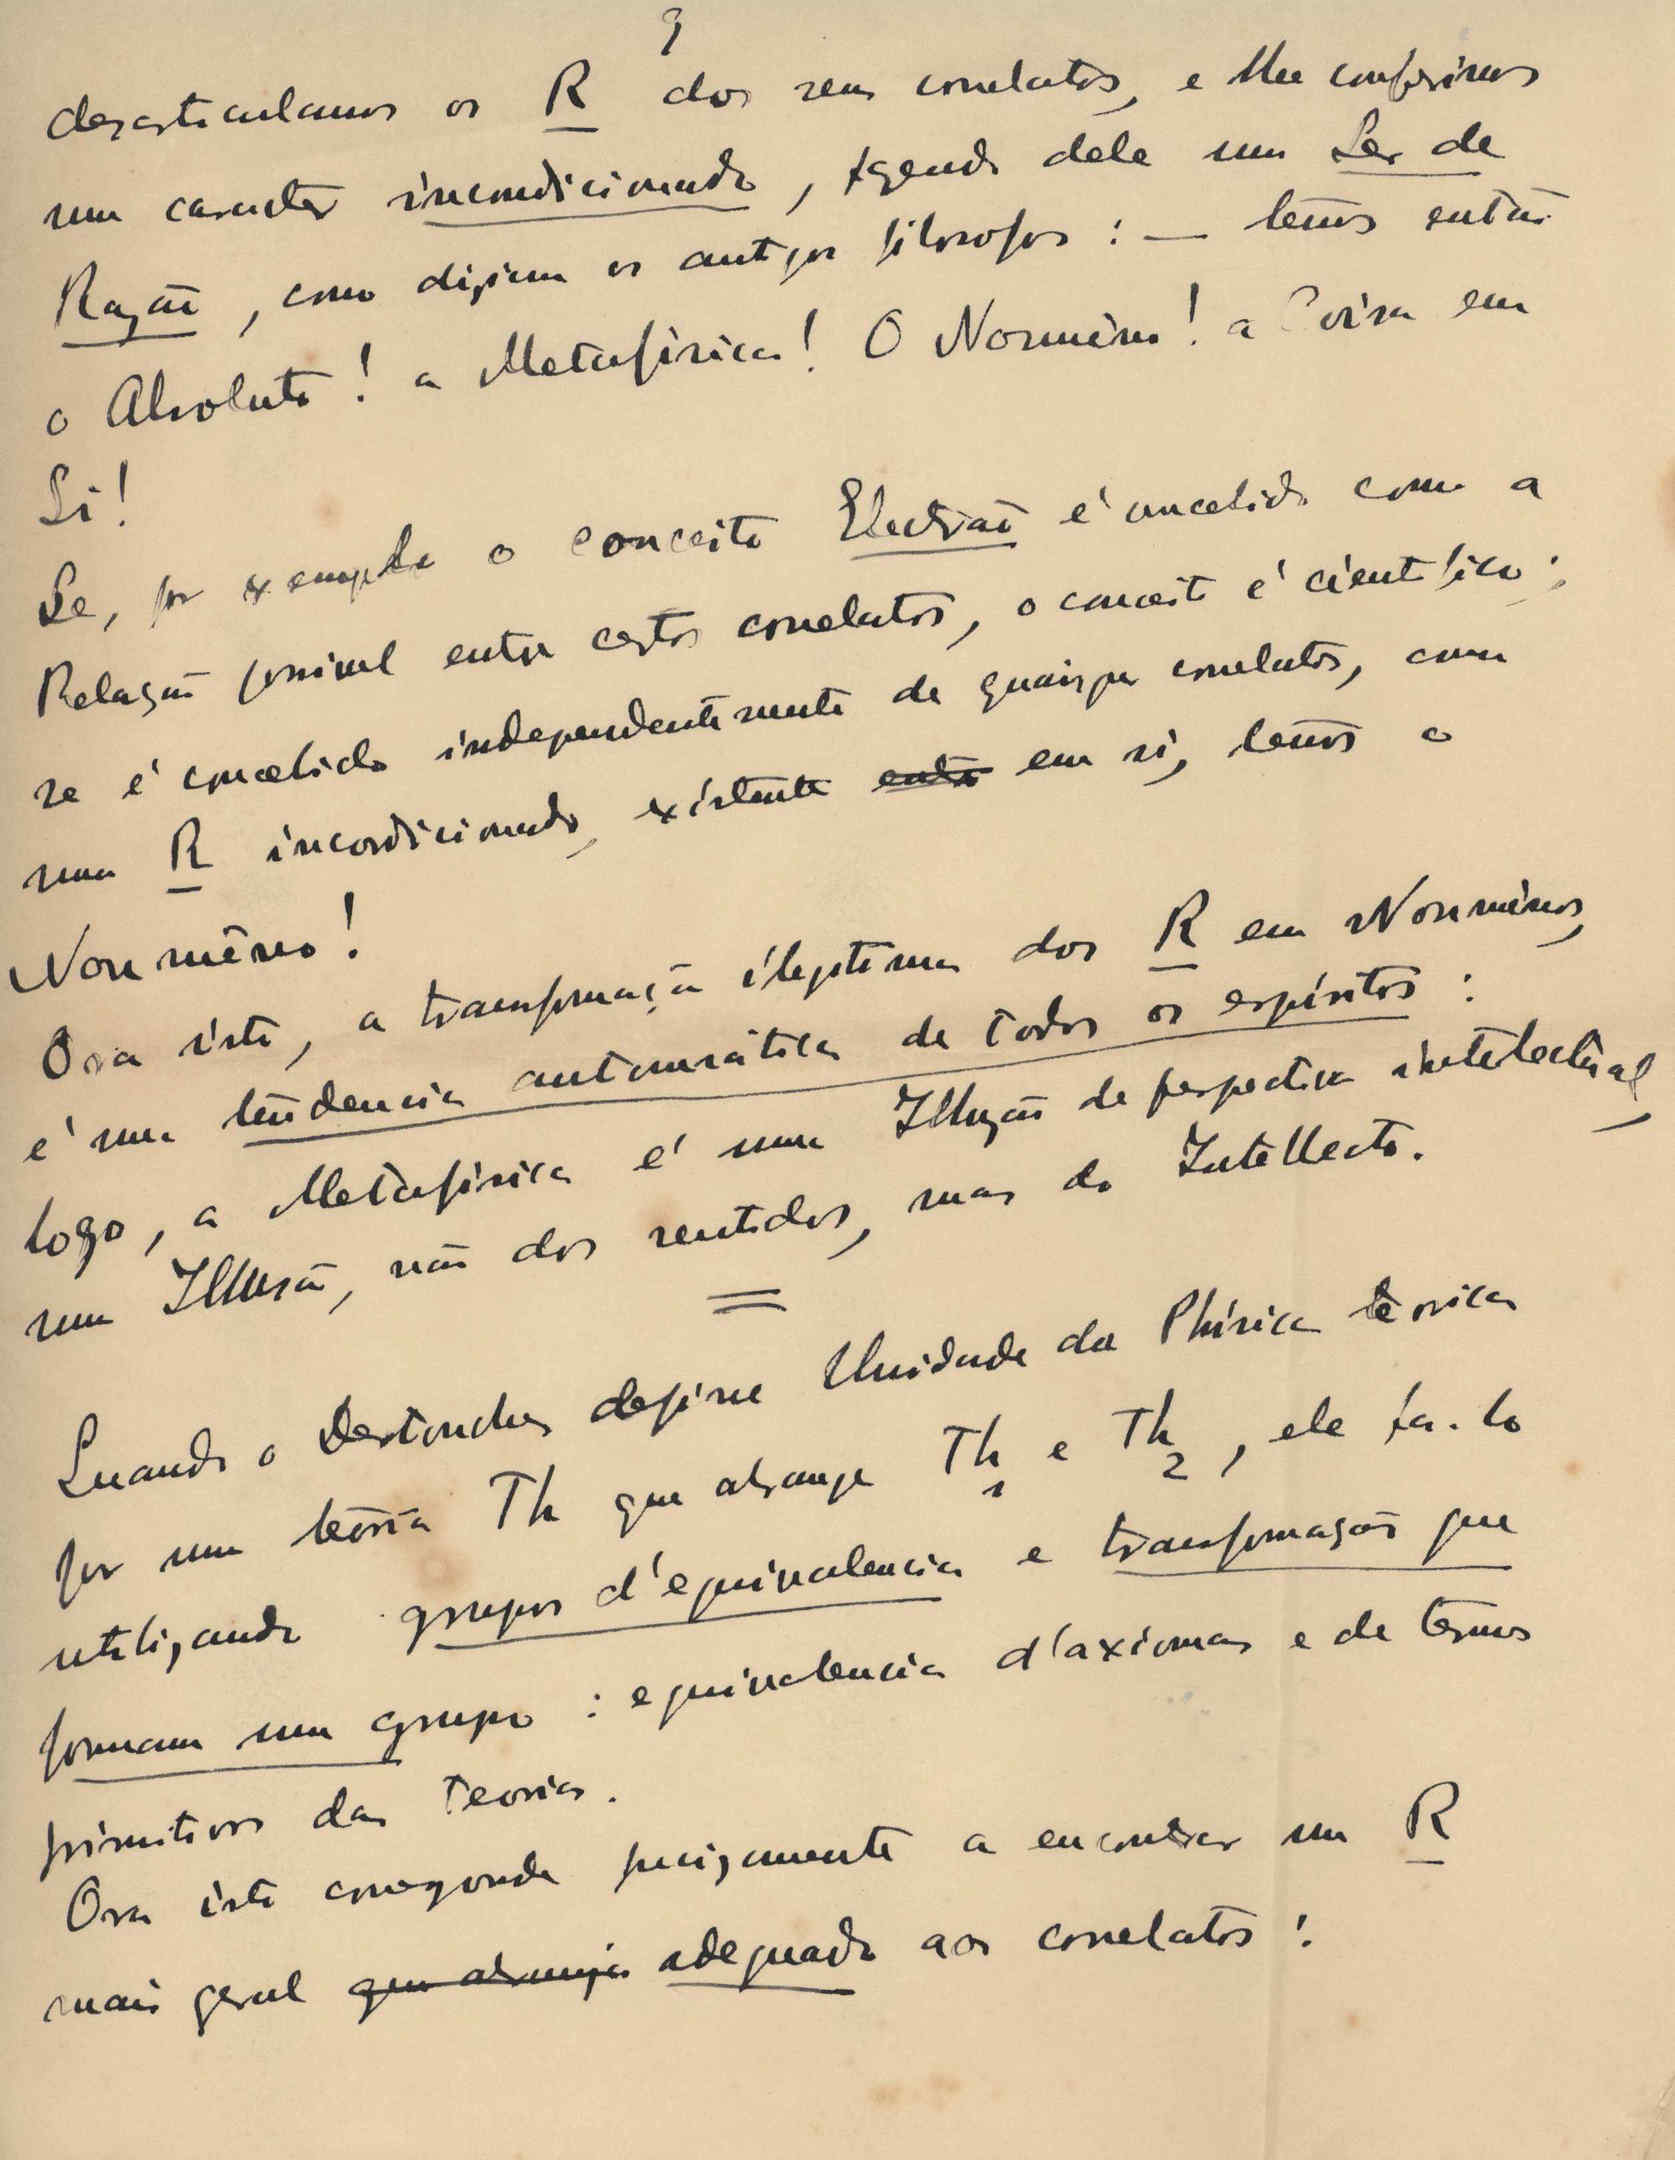 9
desarticulamos os R dos seus correlatos, e lhe conferimos
um caracter incondicionado, fazendo dele um Ser de
Razão, como diziam os antigos filosofos : — temos então
o Absoluto! a Metafísica! O Noumêno! a Coisa em
Si!
Se, por exemplo o conceito Electrão é concebido como a
Relação possivel entre certos correlatos, o conceito é cientifico;
se é concebido independentemente de quaisquer correlatos, como
um R incondicionado, existente em si, temos o
Noumêno!
Ora isto, a transformação ilegitima dos R em Noumênos,
é uma tendencia automática de todos os espíritos :
logo, a Metafísica é uma Illuzão de perspectiva intelectual,
uma Illusão, não dos sentidos, mas do Intellecto.
=
Quando o Destouches define Unidade da Phísica teorica
por uma teoria Th que abrange Th1 e Th2, ele fa-lo
utilizando grupos d'equivalencia e transformação que
formam um grupo : equivalencia d'axiomas e de termos
primitivos das teorias.
Ora isto corresponde precizamente a encontrar um R
mais geral que abranja adequado aos correlatos :